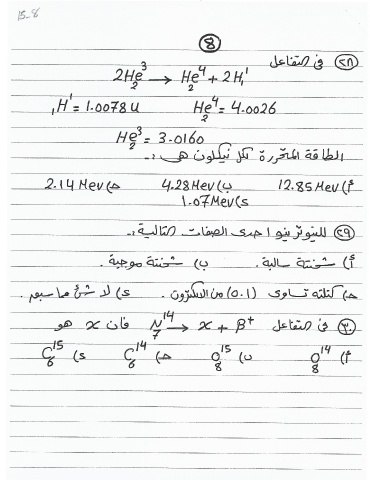 15_8
8
٢٨) فى التفاعل
2He₂³ → He₂⁴ + 2H₁¹
₁H¹ = 1.0078 u    He₂⁴ = 4.0026
He₂³ = 3.0160
الطاقة المتحررة لكل نيكلون هى :-
أ) 12.85 Mev    ب) 4.28 Mev    ج) 2.14 Mev
د) 1.07 Mev
٢٩) للنيوترينو احدى الصفات التالية :-
أ) شحنته سالبة .    ب) شحنته موجبة .
ج) كتلته تساوى (0.1) من الالكترون .    د) لا شئ مما سبق .
٣٠) فى التفاعل N₇¹⁴ → x + β⁺ فان x هو
أ) O₈¹⁴    ب) O₈¹⁵    ج) C₆¹⁴    د) C₆¹⁵